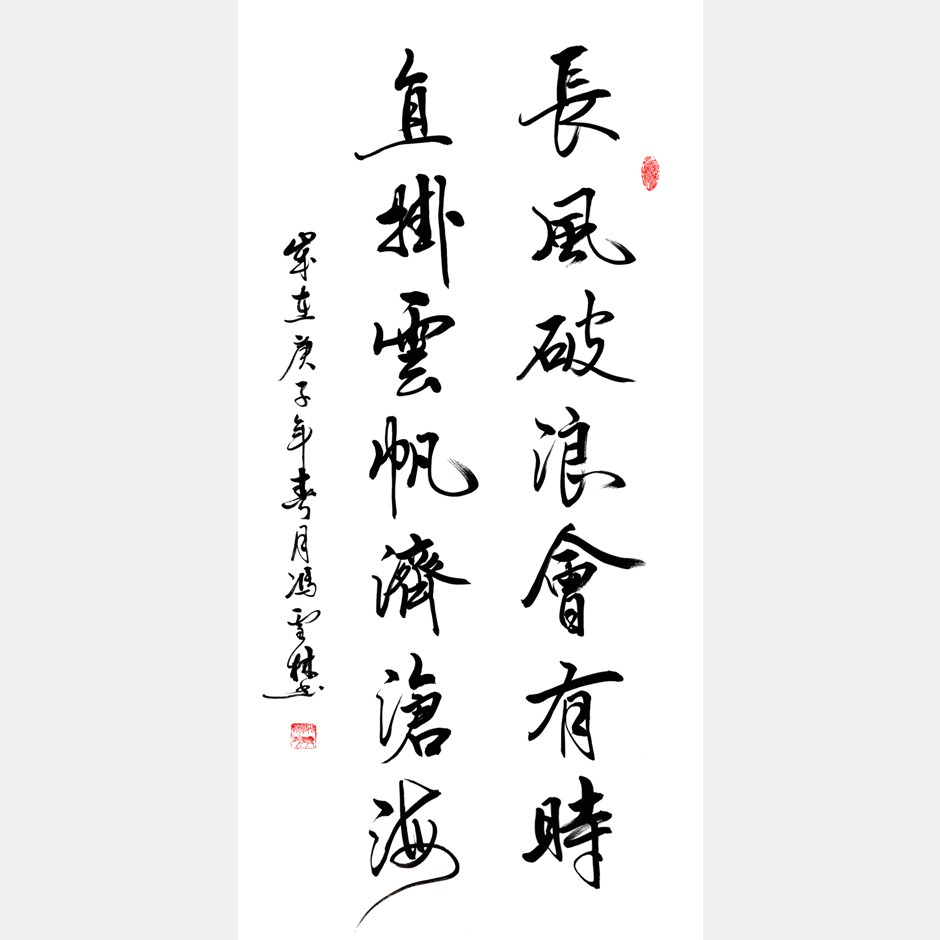 長風破浪會有時
直掛雲帆濟滄海
歲在庚子年春月馮雲林書